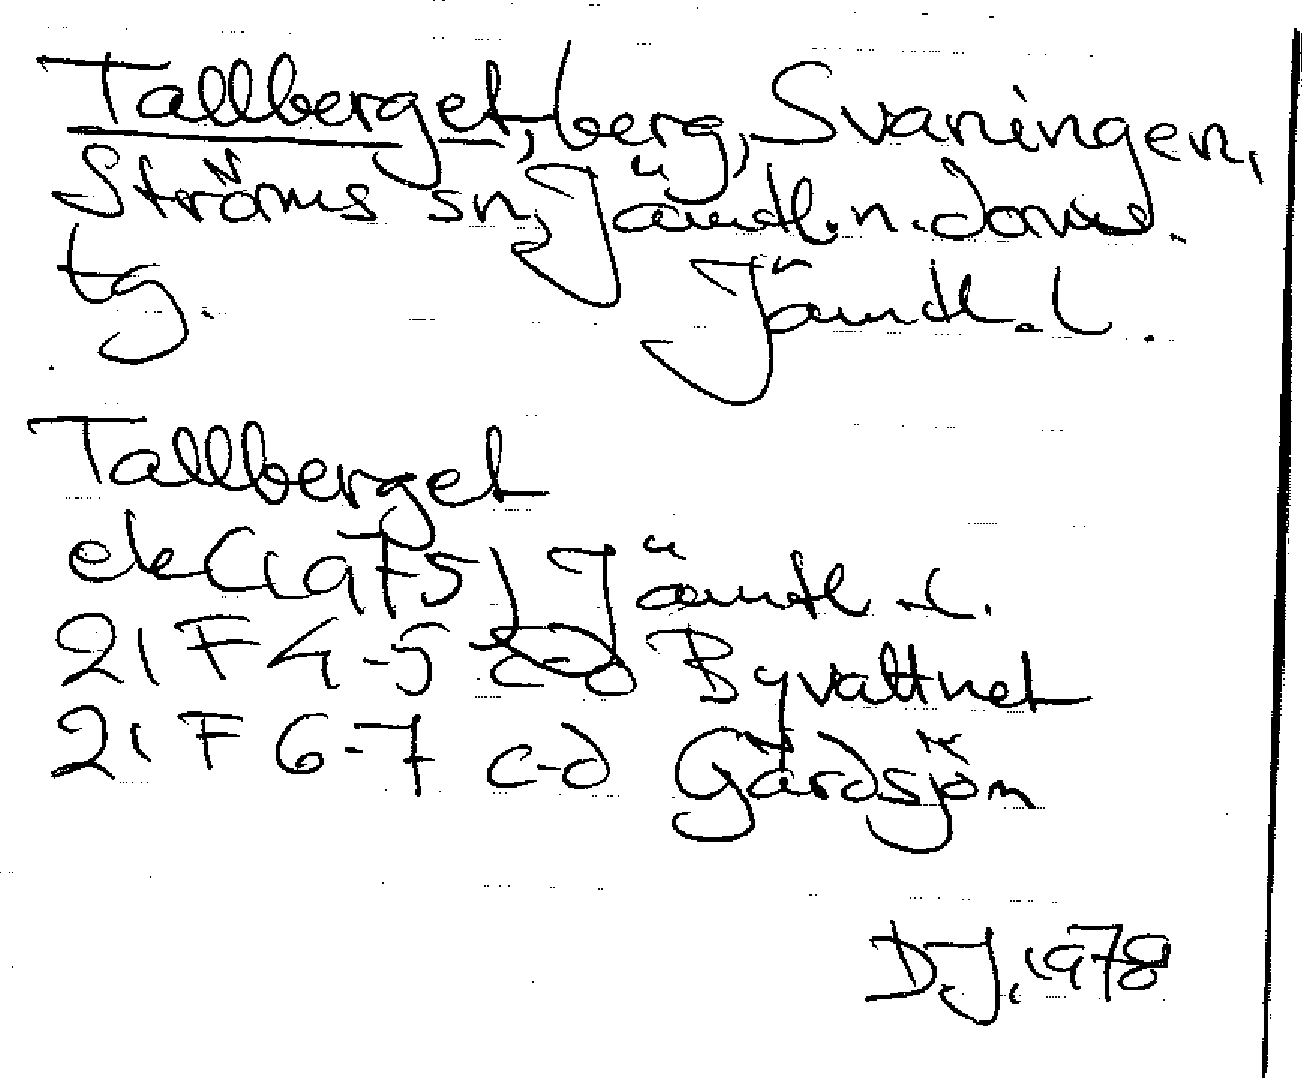 Tallberget, berg, Svaningen,
Ströms sn, Jämtl. n. doms.
tg. Jämtl. l.
Tallberget
ek (1975) Jämtl. l.
21 F 4-5 c-d Byvattnet
21 F 6-7 c-d Gårdsjön
D.J. 1978